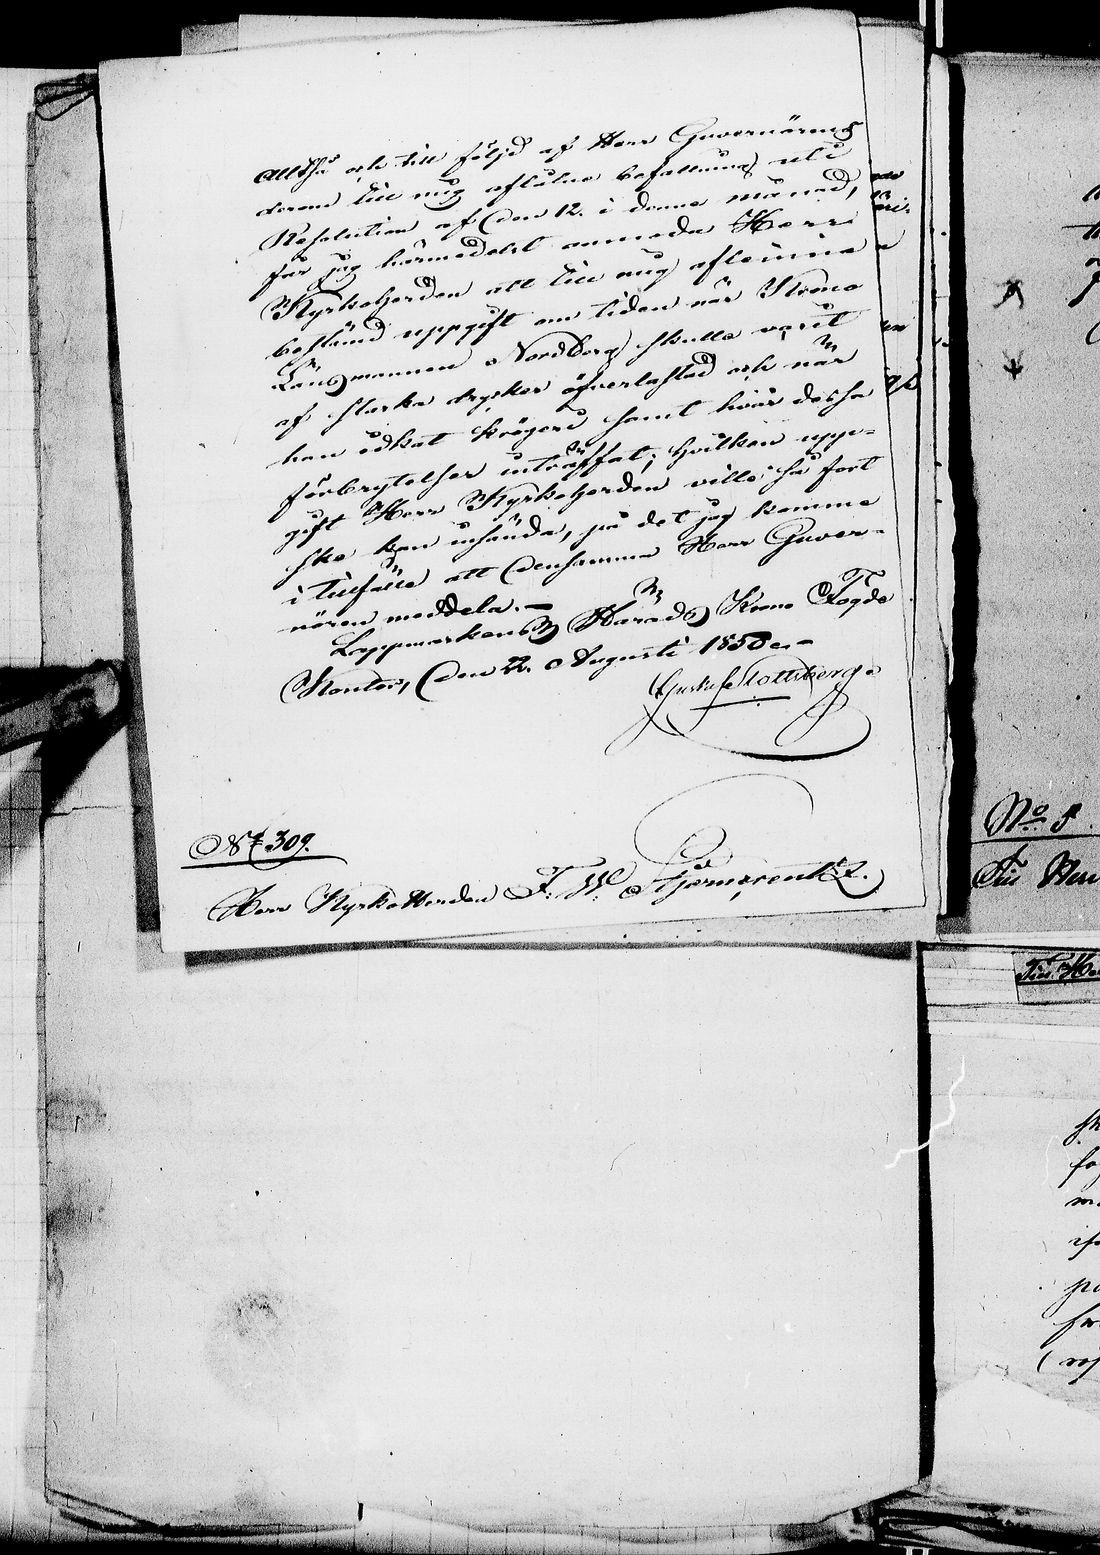 Alltså och till följd af Herr Guvernörens
derom till mig aflåtne befallning uti
Resolution af den 12. i denne månad,
får jag härmedelst anmoda Herr
Kyrkoherden att till mig aflemna
bestämd uppgift om tiden när Krono
Länsmannen Nordberg skulle varit
af starka drycker öfverlastad och när
han idkat krögeri samt hvar dessa
förbrytelser inträffat; hvilken upp-
gift Herr Kyrkoherden ville så fort
ske kan insända, på det jag komme
i tillfälle att densamma Herr Guver-
nören meddela.—
Lappmarkens Härads Krono Fogde
Kontor, den 22. Augusti 1850.
Gustaf
No 309.
Herr Kyrkoherden F. W.
No 5.
Till Herr